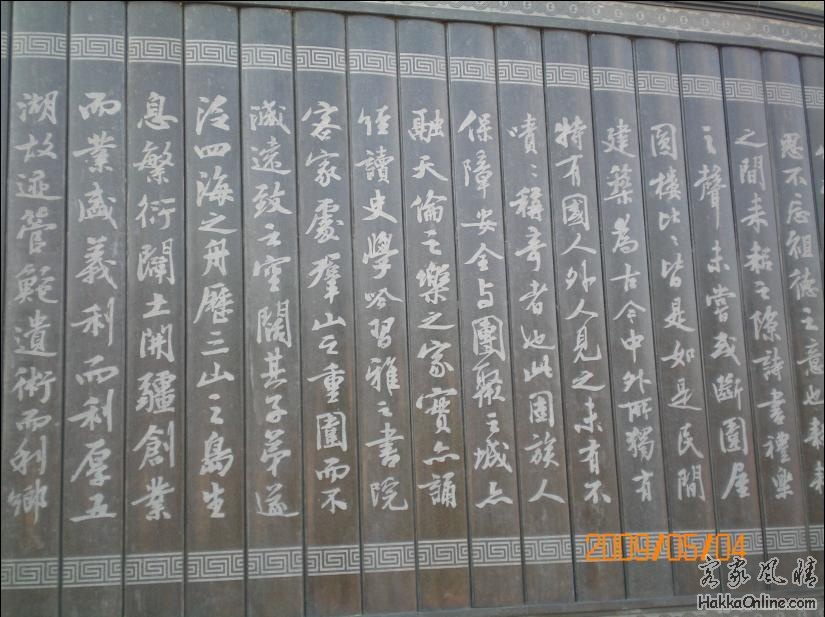 恩不忘祖德之意也耕
之間耒耜之餘詩書禮樂
之聲未嘗或斷圍屋
圓樓比比皆是如是民間
建築為古今中外所獨有
特有國人外人見之未有不
嘖嘖稱奇者也此固族人
保障安全与團聚之城亦
融天倫之樂之家實亦誦
經讀史學吟習雅之書院
客家處羣山之重圍而不
減遠致之空闊其子弟遂
泛四海之舟歷三山之島生
息繁衍闢土開疆創業
而業盛義利而利厚五
湖故跡管鮑遺術而利鄉
2009/05/04
客家風情
HakkaOnline.com